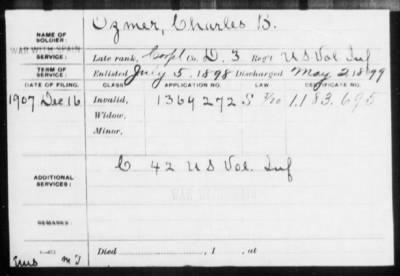 NAME OF SOLDIER: Ozmer, Charles B.
WAR WITH SPAIN
SERVICE: Late rank, Corpl Co. D. 3 Reg't U S Vol Inf
TERM OF SERVICE: Enlisted July 5. 1898 Discharged May 2 1899
DATE OF FILING. CLASS. APPLICATION NO. LAW CERTIFICATE NO.
1907 Dec 16 Invalid, 1364272 1.183.695
Widow,
Minor,
C 42 U S Vol. Inf
ADDITIONAL SERVICES:
REMARKS:
Died , 1 , at